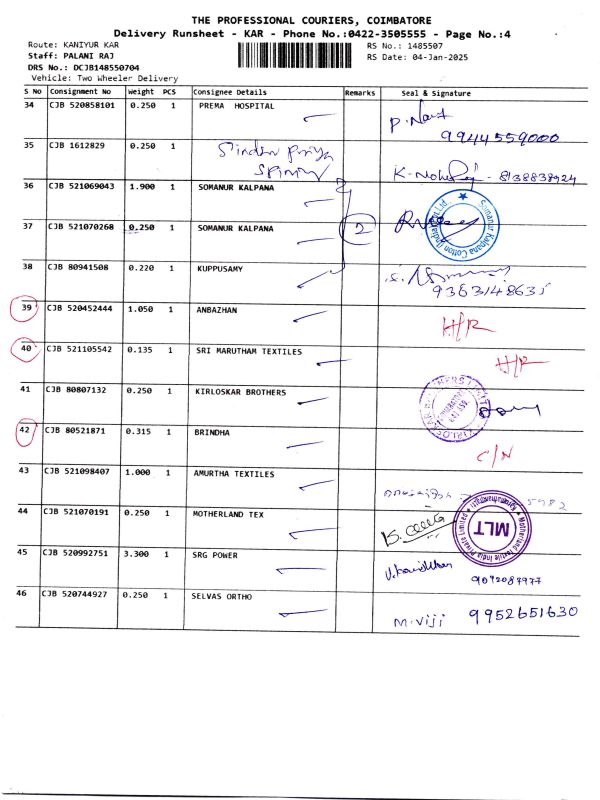 THE PROFESSIONAL COURIERS, COIMBATORE
Delivery Runsheet - KAR - Phone No.:0422-3505555 - Page No.:4
Route: KANIYUR KAR RS No.: 1485507
Staff: PALANI RAJ RS Date: 04-Jan-2025
DRS No.: DCJB148550704
Vehicle: Two Wheeler Delivery
S No Consignment No Weight PCS Consignee Details Remarks Seal & Signature
34 CJB 520858101 0.250 1 PREMA HOSPITAL
9944559000
35 CJB 1612829 0.250 1 8138838924
36 CJB 521069043 1.900 1 SOMANUR KALPANA
37 CJB 521070268 0.250 1 SOMANUR KALPANA 2 Somanur Kalpana Cotton (India)
38 CJB 80941508 0.220 1 KUPPUSAMY
39 CJB 520452444 1.050 1 ANBAZHAN H/R
40 CJB 521105542 0.135 1 SRI MARUTHAM TEXTILES H/R
41 CJB 80807132 0.250 1 KIRLOSKAR BROTHERS
42 CJB 80521871 0.315 1 BRINDHA C/N
43 CJB 521098407 1.000 1 AMURTHA TEXTILES 5982
44 CJB 521070191 0.250 1 MOTHERLAND TEX MLT
45 CJB 520992751 3.300 1 SRG POWER
46 CJB 520744927 0.250 1 SELVAS ORTHO M.Viji 9952651630